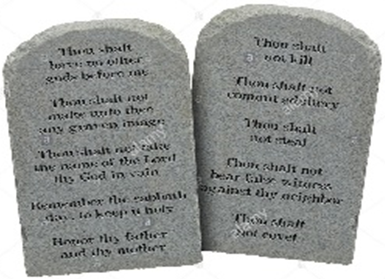 Thou shalt
have no other
gods before me
Thou shalt not
make unto thee
any graven image
Thou shalt not take
the name of the Lord
thy God in vain
Remember the sabbath
day, to keep it holy
Honor thy father
and thy mother
Thou shalt
not kill
Thou shalt not
commit adultery
Thou shalt
not steal
Thou shalt not
bear false witness
against thy neighbor
Thou shalt
not covet